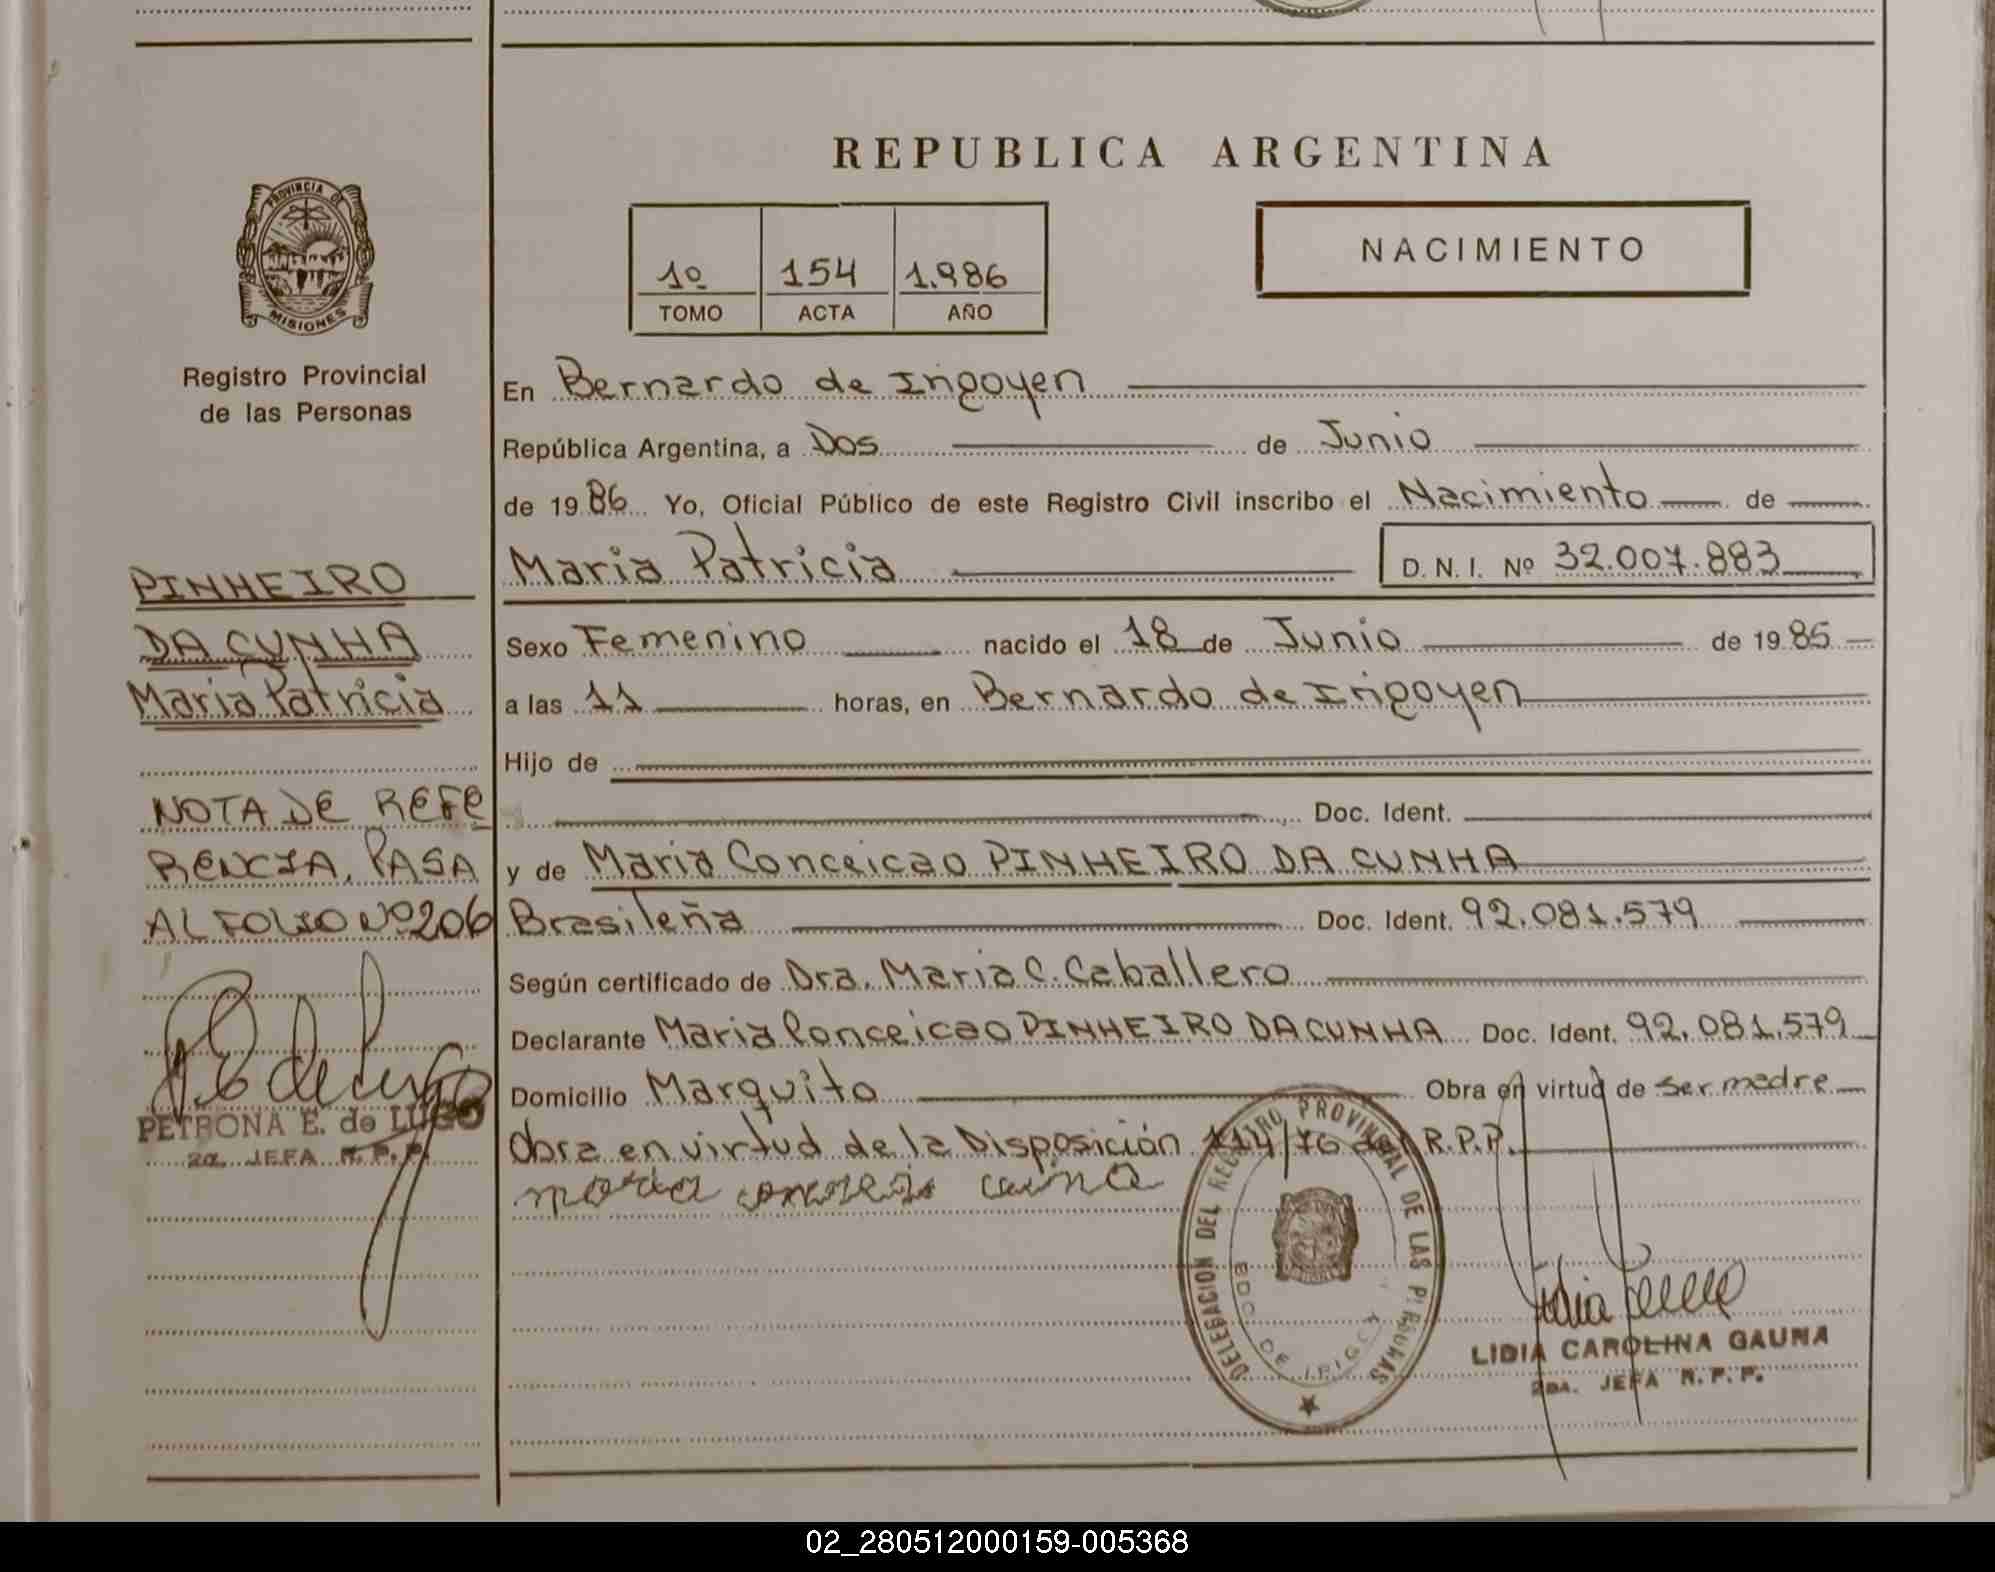 REPUBLICA ARGENTINA
PROVINCIA DE
MISIONES
Registro Provincial
de las Personas
1º 154 1.986
TOMO ACTA AÑO
NACIMIENTO
En Bernardo de Irigoyen
República Argentina, a Dos de Junio
de 1986 Yo, Oficial Público de este Registro Civil inscribo el Nacimiento de
Maria Patricia D. N. I. Nº 32.007.883
Sexo Femenino nacido el 18 de Junio de 1985
a las 11 horas, en Bernardo de Irigoyen
Hijo de
Doc. Ident.
y de Maria Conceicao PINHEIRO DA CUNHA
Brasileña Doc. Ident. 92.081.579
Según certificado de Dra. Maria C. Caballero
Declarante Maria Conceicao PINHEIRO DA CUNHA Doc. Ident. 92.081.579
Domicilio Marquito Obra en virtud de ser madre
Obra en virtud de la Disposición 114/76 del R.P.P.
PINHEIRO
DA CUNHA
Maria Patricia
NOTA DE REFE
RENCIA, PASA
AL FOLIO Nº 206
PETRONA E. de LUGO
2a. JEFA R.P.P.
DELEGACION DEL REGISTRO PROVINCIAL DE LAS PERSONAS
BDO. DE IRIGOYEN
LIDIA CAROLINA GAUNA
2DA. JEFA R.P.P.
02_280512000159-005368